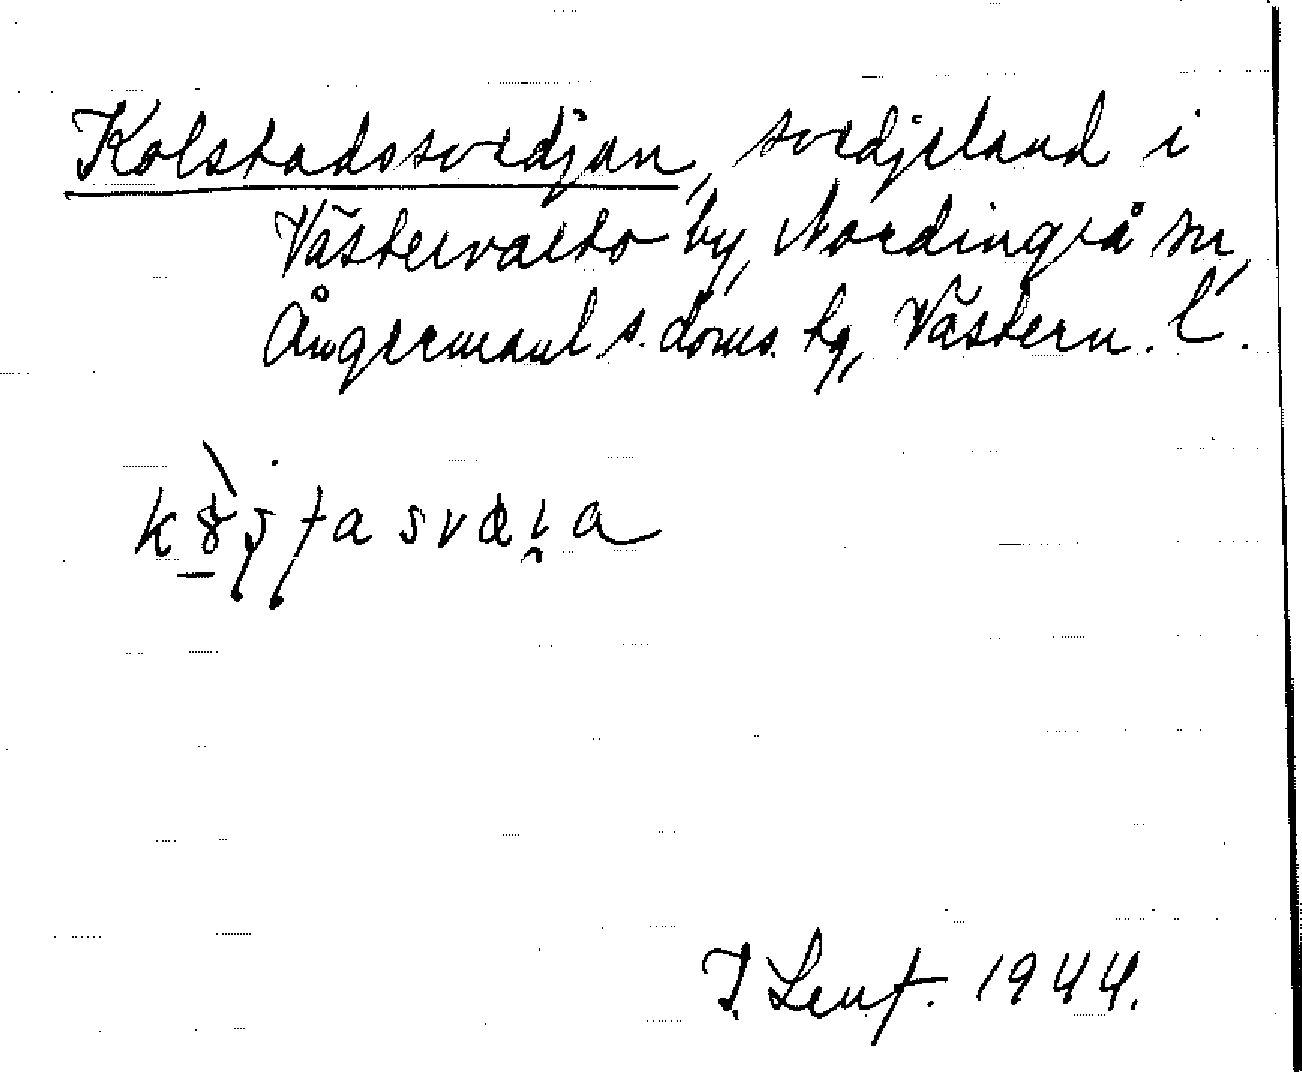 Kolstadssvedjan, svedjeland i
Västervalto by, Nordingrå sn,
Ångermanl s. doms. tg, Västern. l.
I. Lenf. 1944.